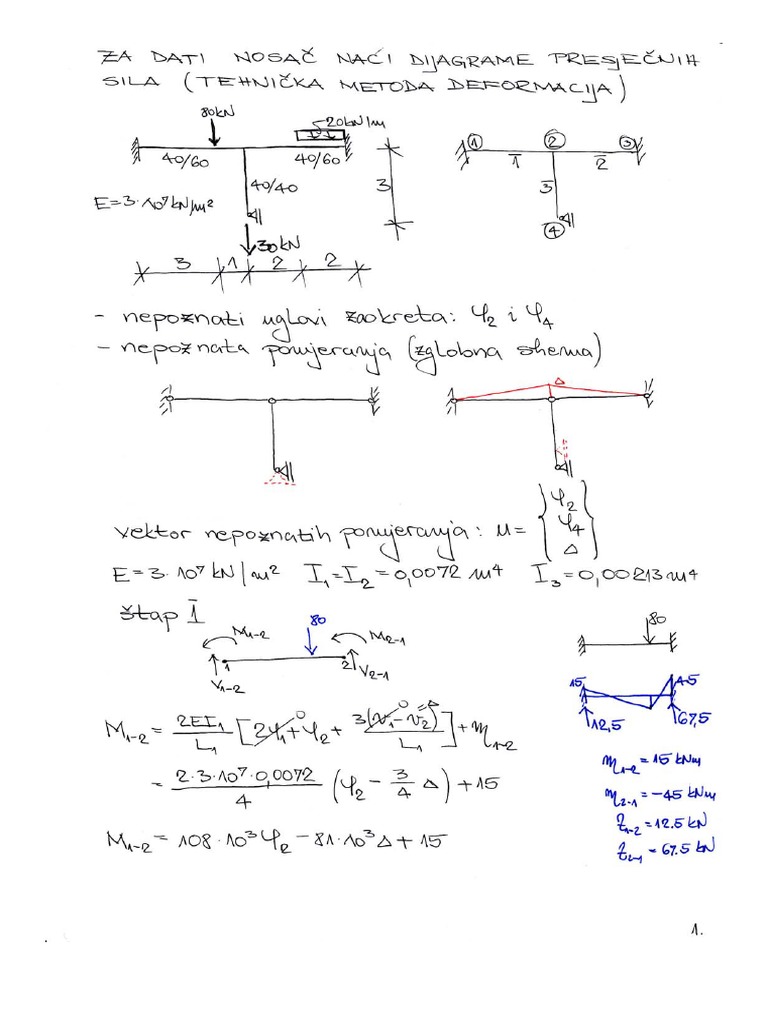 ZA DATI NOSAČ NAĆI DIJAGRAME PRESJEČNIH
SILA (TEHNIČKA METODA DEFORMACIJA)
80kN
20kN/m
40/60
40/60
40/40
E=3·10⁷kN/m²
3
30kN
3 1 2 2
1 2 3
1̄ 2̄
3̄
4
- nepoznati uglovi zaokreta: φ₂ i φ₄
- nepoznata pomjeranja (zglobna shema)
Δ
vektor nepoznatih pomjeranja: u = {φ₂ φ₄ Δ}
E=3·10⁷ kN/m² I₁=I₂=0,0072 m⁴ I₃=0,00213 m⁴
štap 1̄
M₁₋₂
80
M₂₋₁
1
2
V₁₋₂
V₂₋₁
80
15
45
12,5
67,5
M₁₋₂ = 2EI₁/L₁ [2φ₁ + φ₂ + 3(v₁ - v₂)/L₁] + m₁₋₂
0
0
=Δ
= 2·3·10⁷·0,0072/4 (φ₂ - 3/4 Δ) + 15
M₁₋₂ = 108·10³φ₂ - 81·10³Δ + 15
m₁₋₂ = 15 kNm
m₂₋₁ = -45 kNm
Z₁₋₂ = 12.5 kN
Z₂₋₁ = 67.5 kN
1.